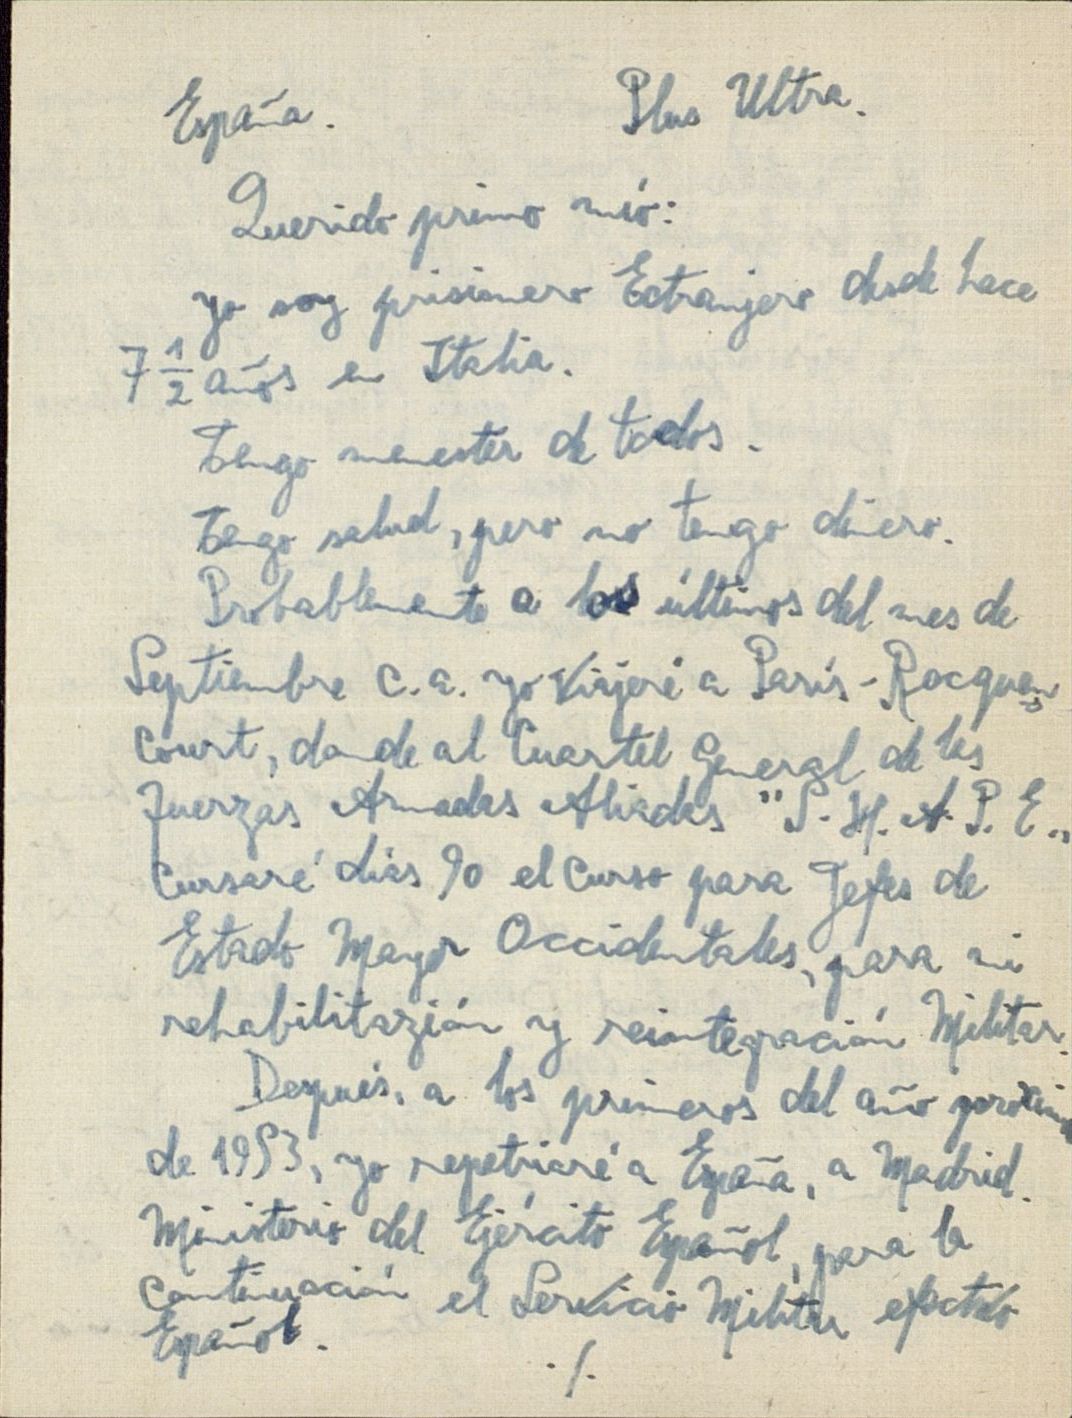 España. Plus Ultra.
Querido primo mío:
yo soy prisionero Extranjero desde hace
7 1/2 años en Italia.
Tengo menester de todos.
Tengo salud, pero no tengo dinero.
Probablemente a los últimos del mes de
Septiembre c.a. yo viajeré a París-Rocquen
court, donde al Cuartel General de las
Fuerzas Armadas Aliadas "S.H.A.P.E."
Cursaré días 90 el Curso para Jefes de
Estado Mayor Occidentales, para mi
rehabilitazión y reintegración Militar.
Después, a los primeros del año próximo
de 1953, yo repetriaré a España, a Madrid.
Ministerio del Ejército Español, para la
continuación el Servicio Militar efectivo
Español.
./.